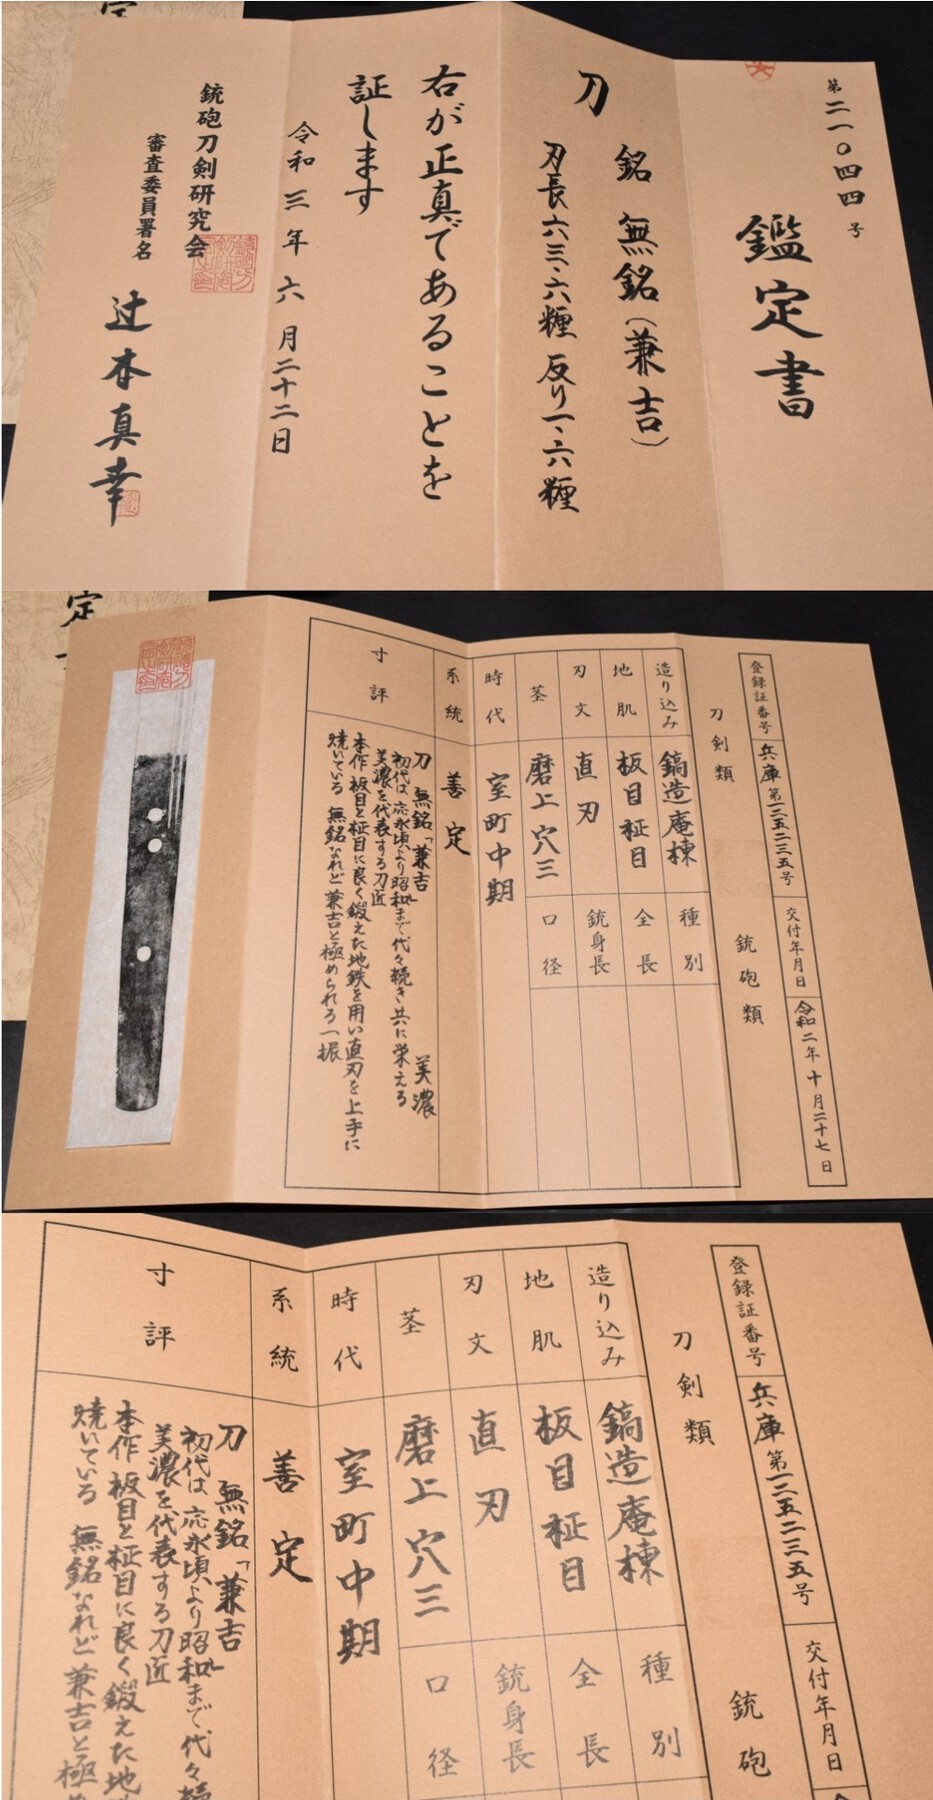 第二一〇四四号
鑑定書
刀
銘 無銘(兼吉)
刃長六三、六糎 反り一、六糎
右が正真であることを
証します
令和三年六月二十二日
銃砲刀剣研究会
審査委員署名
辻本真幸
定
登録証番号 兵庫第一二五二三五号 交付年月日 令和二年十月二十七日
刀剣類 銃砲類
造り込み 鎬造庵棟 種別
地肌 板目柾目 全長
刃文 直刃 銃身長
茎 磨上穴三 口径
時代 室町中期
系統 善定
寸評
刀 無銘「兼吉」 美濃
初代は応永頃より昭和まで代々続き共に栄える
美濃を代表する刀匠
本作板目と柾目に良く鍛えた地鉄を用い直刃を上手に
焼いている 無銘なれど兼吉と極められる一振
登録証番号 兵庫第一二五二三五号 交付年月日
刀剣類 銃砲
造り込み 鎬造庵棟 種別
地肌 板目柾目 全長
刃文 直刃 銃身長
茎 磨上穴三 口径
時代 室町中期
系統 善定
寸評
刀 無銘「兼吉」
初代は応永頃より昭和まで代々続
美濃を代表する刀匠
本作板目と柾目に良く鍛えた地
焼いている 無銘なれど兼吉と極